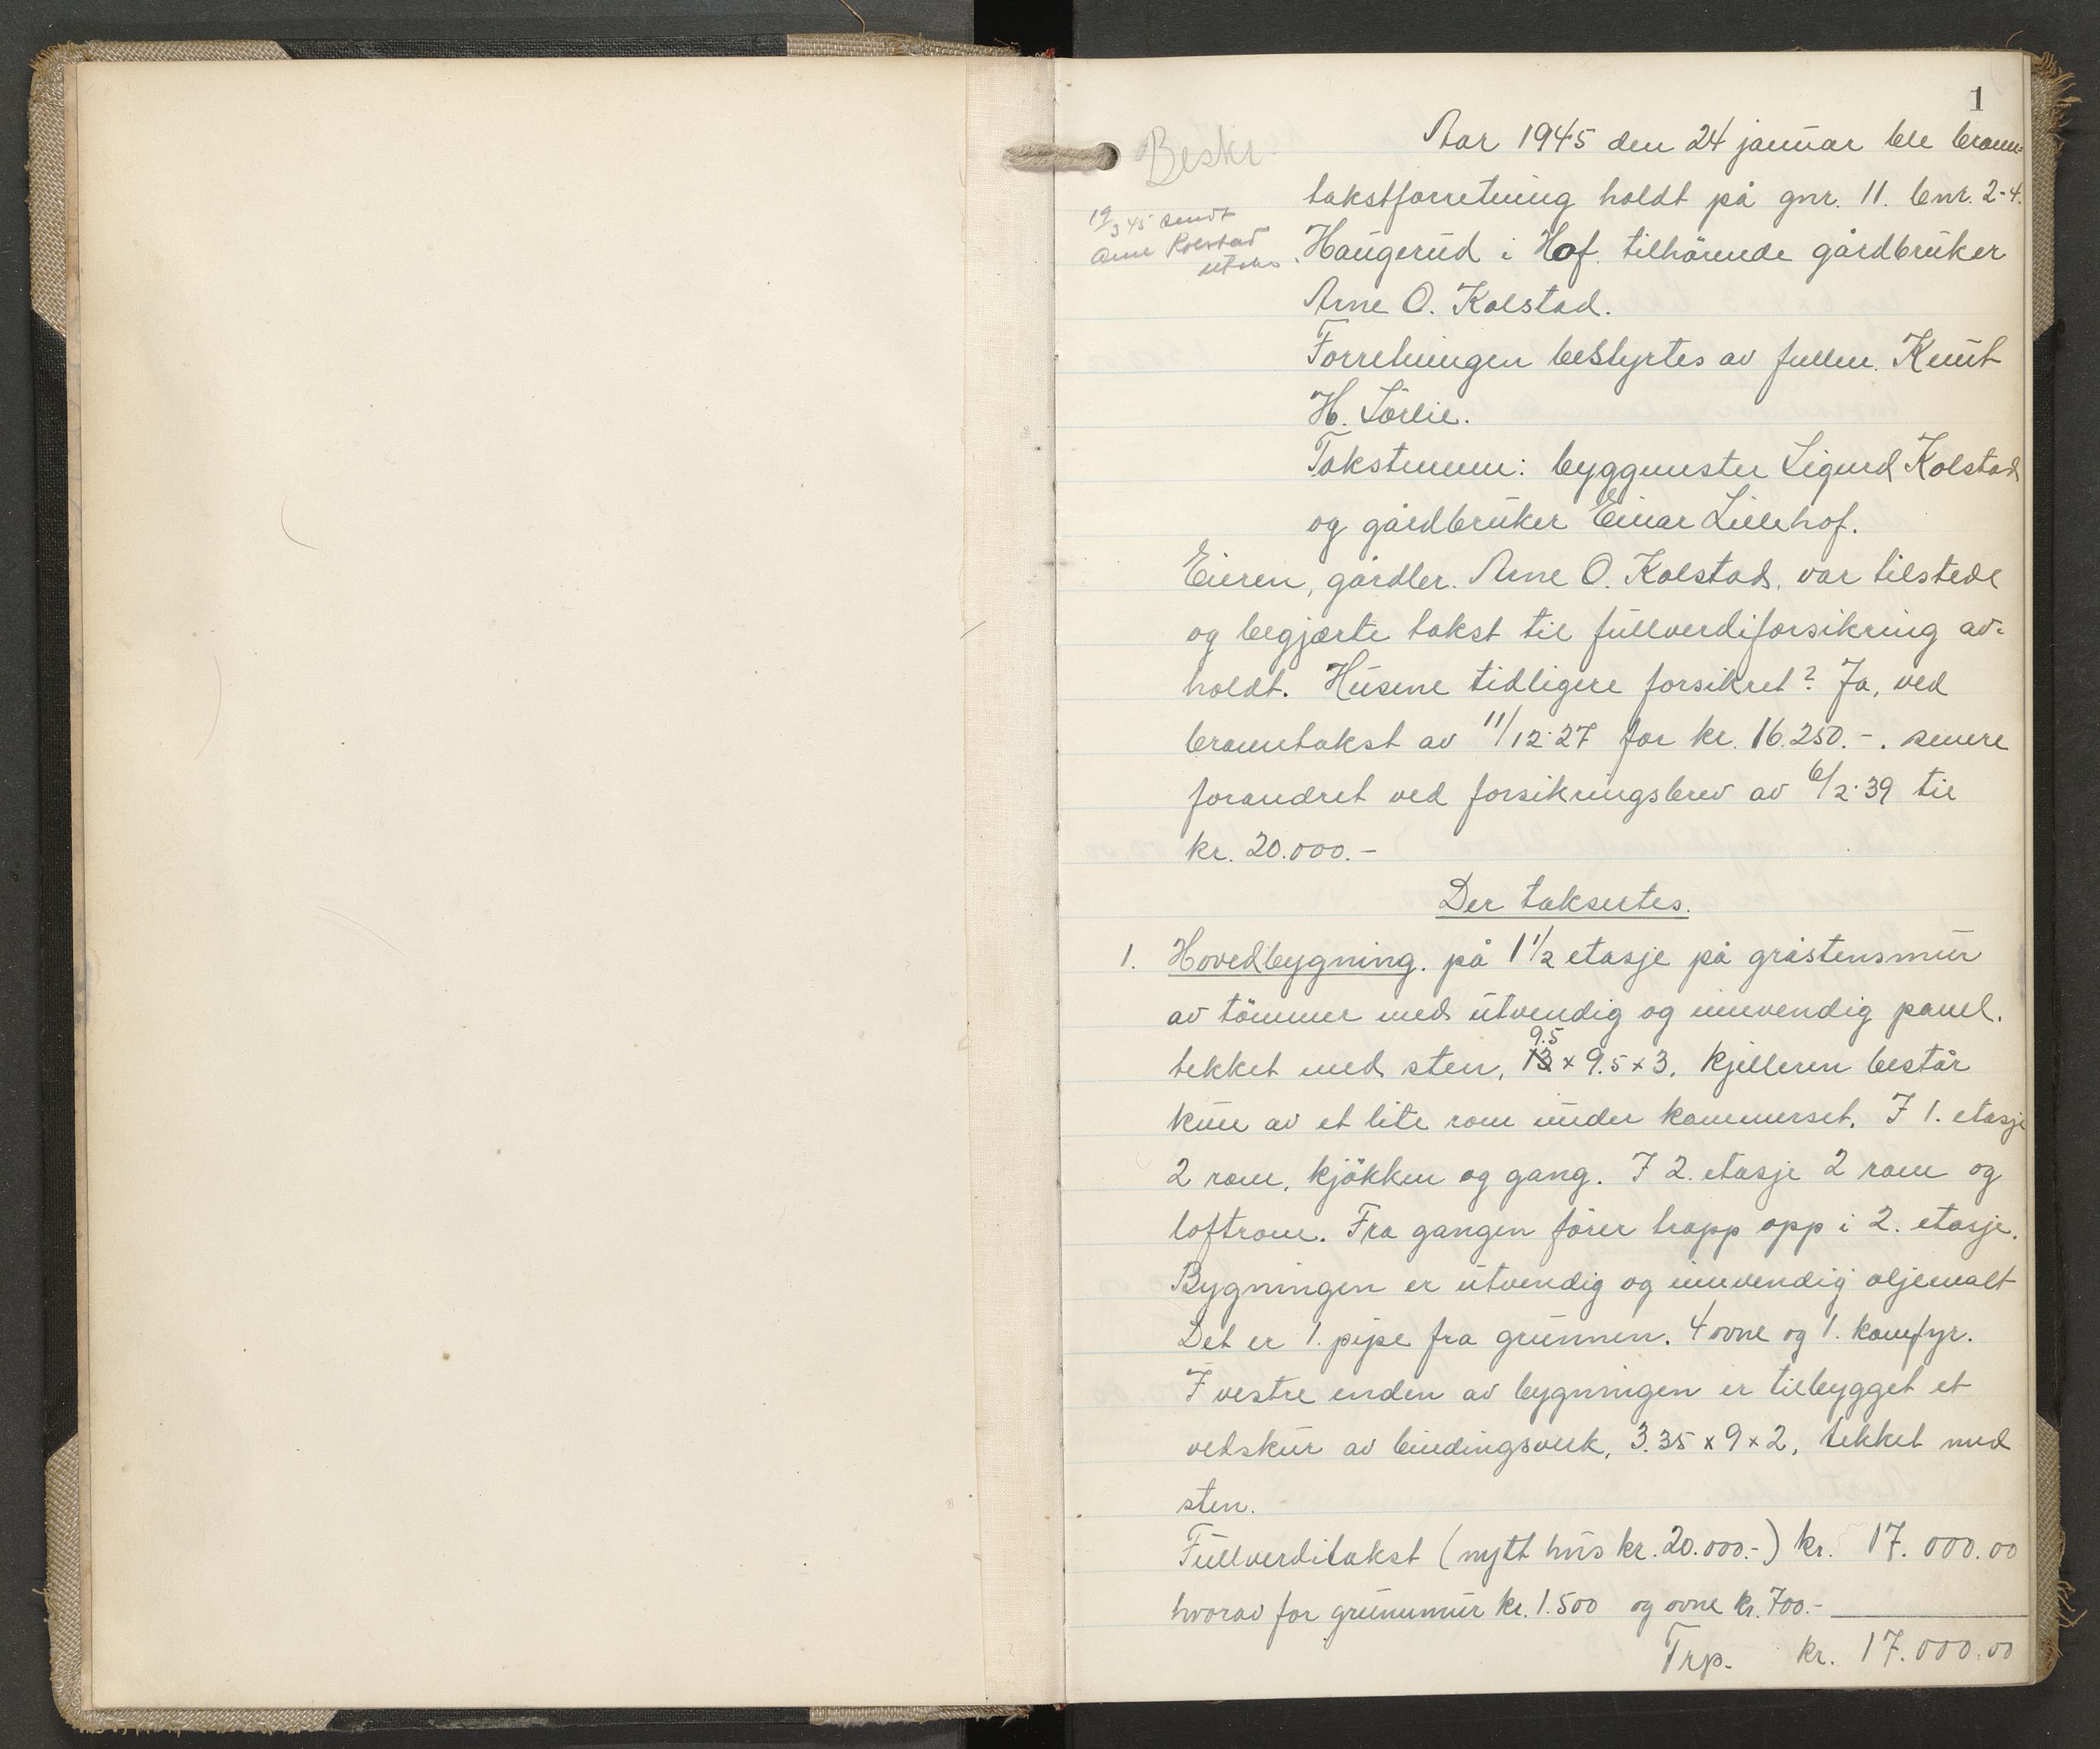 1
Beskr.
19/3 45 sendt
Arne Kolstad
utskr.
Aar 1945 den 24 januar ble brann=
takstforretning holdt på gnr. 11. bnr. 2-4.
Haugerud i Hof. tilhörende gårdbruker
Arne O. Kolstad.
Forretningen bestyrtes av fullm. Knut
H. Sörlie.
Takstmenn: byggmester Sigurd Kolstad
og gårdbruker Einar Lillehof.
Eieren, gårdbr. Arne O. Kolstad, var tilstede
og begjærte takst til fullverdiforsikring av=
holdt. Husene tidligere forsikret? Ja, ved
branntakst av 11/12-27 for kr. 16.250.-. senere
forandret ved forsikringsbrev av 6/2-39 til
kr. 20.000.-
Der taksertes.
1. Hovedbygning. på 1 1/2 etasje på gråstensmur
av tömmer med utvendig og innvendig panel.
9.5
tekket med sten, 13 x 9.5 x 3. Kjelleren består
kun av et lite rom under kammerset. I 1. etasje
2 rom, kjökken og gang. I 2. etasje 2 rom og
loftrom. Fra gangen förer trapp opp i 2. etasje.
Bygningen er utvendig og innvendig oljemalt
Det er 1. pipe fra grunnen. 4 ovne og 1. komfyr.
I vestre enden av bygningen er tilbygget et
vedskur av bindingsverk, 3.35 x 9 x 2, tekket med
sten.
Fullverditakst (nytt hus kr. 20.000.-) kr. 17.000.00
hvorav for grunnmur kr. 1.500 og ovne kr. 700.-
Trp. kr. 17.000.00